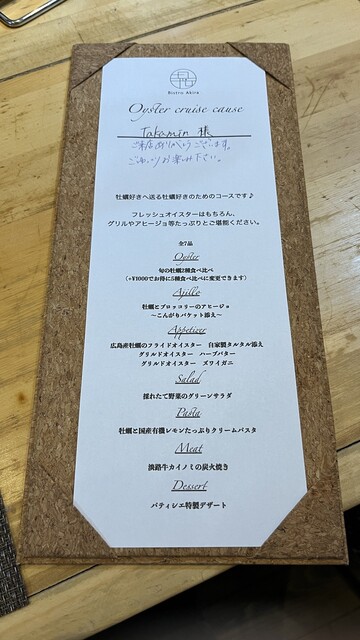 Bistro Akira
Oyster cruise cause
Takamin 様
ご来店ありがとうございます。
ごゆっくりお楽しみ下さい。
牡蠣好きへ送る牡蠣好きのためのコースです♪
フレッシュオイスターはもちろん、
グリルやアヒージョ等たっぷりとご堪能ください。
全7品
Oyster
旬の牡蠣2種食べ比べ
(+¥1000でお得に5種食べ比べに変更できます)
Ajillo
牡蠣とブロッコリーのアヒージョ
～こんがりバケット添え～
Appetizer
広島産牡蠣のフライドオイスター 自家製タルタル添え
グリルドオイスター ハーブバター
グリルドオイスター ズワイガニ
Salad
採れたて野菜のグリーンサラダ
Pasta
牡蠣と国産有機レモンたっぷりクリームパスタ
Meat
淡路牛カイノミの炭火焼き
Dessert
パティシエ特製デザート